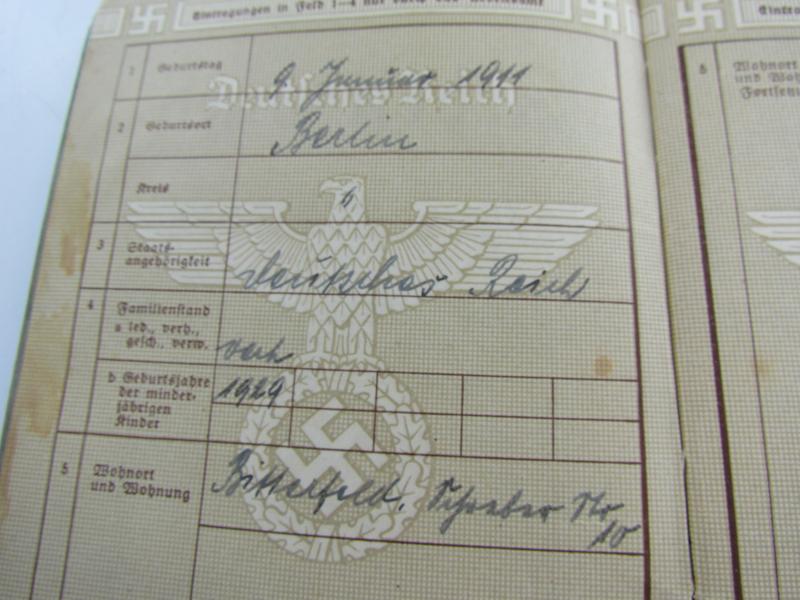 Eintragungen in Feld 1–4 nur durch das Arbeitsamt
Deutsches Reich
1 Geburtstag 9. Januar 1911
2 Geburtsort Berlin
Kreis "
3 Staats-
angehörigkeit deutsches Reich
4 Familienstand
a led., verh.,
gesch., verw. verh
b Geburtsjahre 1929
der minder-
jährigen
Kinder
5 Wohnort
und Wohnung Bitterfeld, Schreber Str
10
5 Wohnort
und Woh